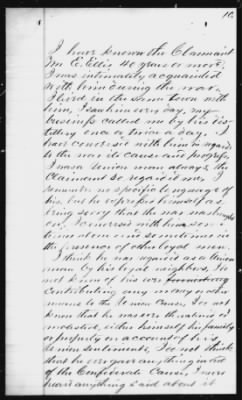 10.
I have known the Claimant
Wm E. Ellis 40 years or more.
I was intimately acquainted
with him during the war.
I lived in the same town with
him, I saw him every day, my
business called me by his dis-
tillery once or twice a day. I
have conversed with him in regard
to the war its cause and progress
I was a Union man always, the
Claimant so regarded me. I
remember no specific language of
his, but he expressed himself as
being sorry that the war was brought
on, I conversed with him some-
times alone and sometimes in
the presence of other loyal men.
I think he was regarded as a Union
man by his loyal neighbors, I do
not know of his ever
contributing any money or other
means to the Union Cause, I do not
know that he was ever threatened or
molested, either himself his family
or property on account of his
Union sentiments, I do not think
that he ever gave anything in aid
of the Confederate Cause, I never
heard anything said about it